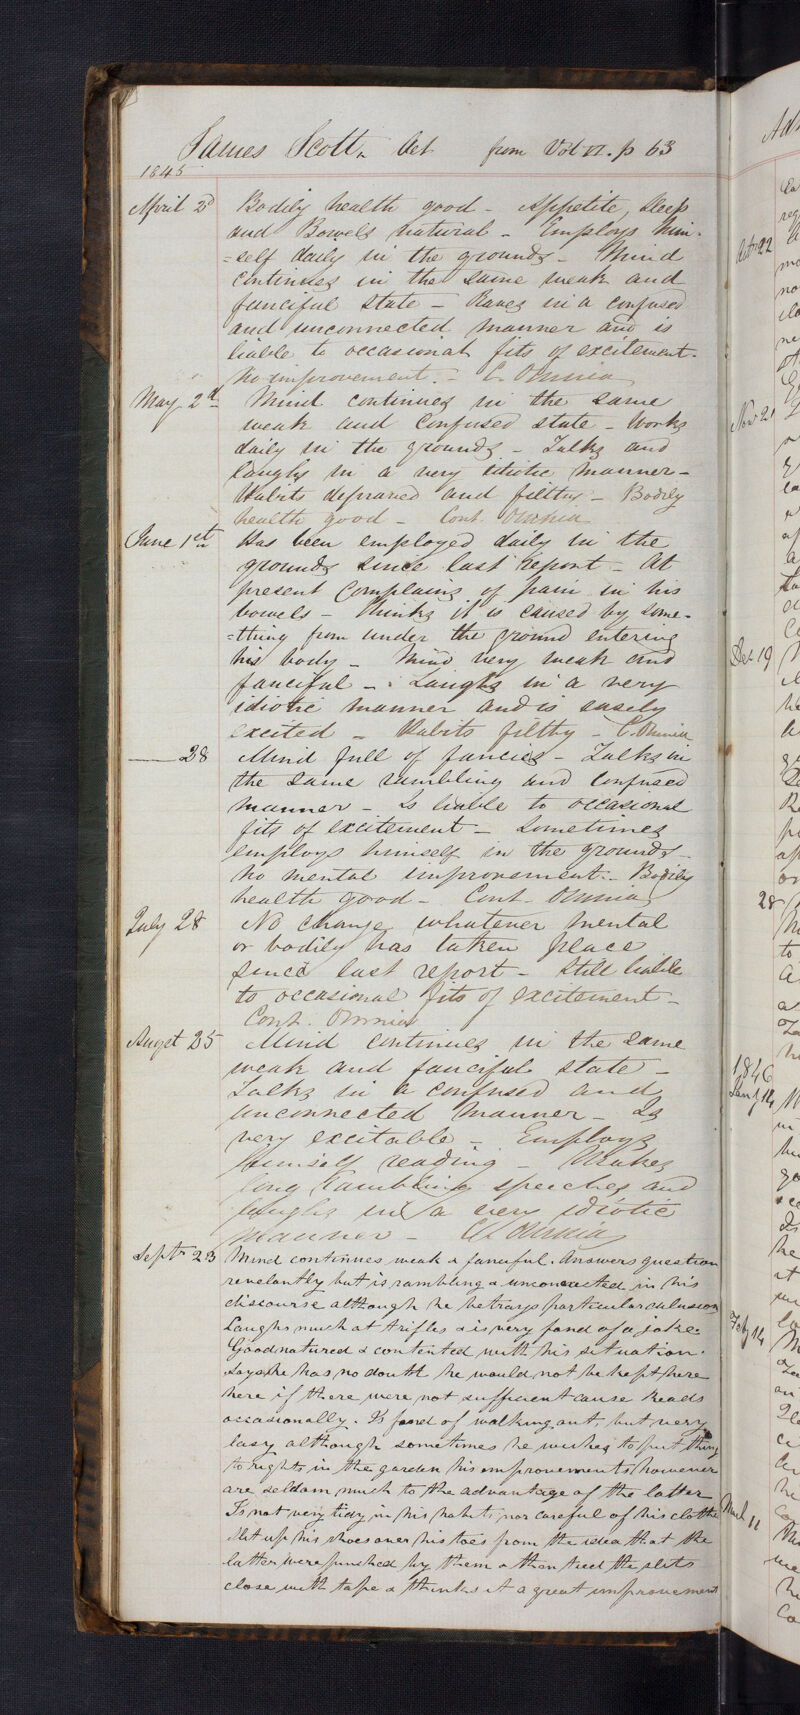 James Scott. Act from Vol VI. p 63
1845
April 2d Bodily health good - Appetite, Sleep
and Bowels natural - Employs him-
=self daily in the grounds - Mind
continues in the same weak and
fanciful state - Raves in a confused
and unconnected manner and is
liable to occasional fits of excitement.
No improvement. - C. Omnia
May 2d Mind continues in the same
weak and confused state - Works
daily in the grounds - Talks and
laughs in a very idiotic manner -
Habits depraved and filthy - Bodily
health good - Cont. Omnia
June 1st Has been employed daily in the
grounds since last report - At
present complains of pain in his
bowels - Thinks it is caused by some-
=thing from under the ground entering
his body - Mind very weak and
fanciful - Laughs in a very
idiotic manner and is easily
excited - Habits filthy - C. Omnia
— 28 Mind full of fancies - Talks in
the same rambling and confused
manner - Is liable to occasional
fits of excitement - Sometimes
employs himself in the grounds -
No mental improvement - Bodily
health good - Cont. Omnia
July 28 No change whatever mental
or bodily has taken place
since last report - Still liable
to occasional fits of excitement -
Cont. Omnia
Augst 25 Mind continues in the same
weak and fanciful state -
Talks in a confused and
unconnected manner - Is
very excitable - Employs
himself reading - Makes
long rambling speeches and
laughs in a very idiotic
manner - Ct Omnia
Septr 23 Mind continues weak & fanciful. Answers question
revelantly but is rambling & unconnected in his
discourse although he betrays particular delusions
Laughs much at trifles & is very fond of a joke.
Goodnatured & contented with his situation.
Says he has no doubt he would not be kept here
here if there were not sufficient cause Reads
occasionally. Is fond of walking out, but very
lasy although sometimes he wishes to put things
to rights in the garden his improvements however
are seldom much to the advantage of the latter
Is not very tidy in his habits, nor careful of his clothes
Slit up his shoes over his toes from the idea that the
latter were pinched by them & then tied the slits
close with tape & thinks it a great improvement
Octr 22
Nov 21
Dec 19
28
1846
Jany 14
Feby 14
March 11